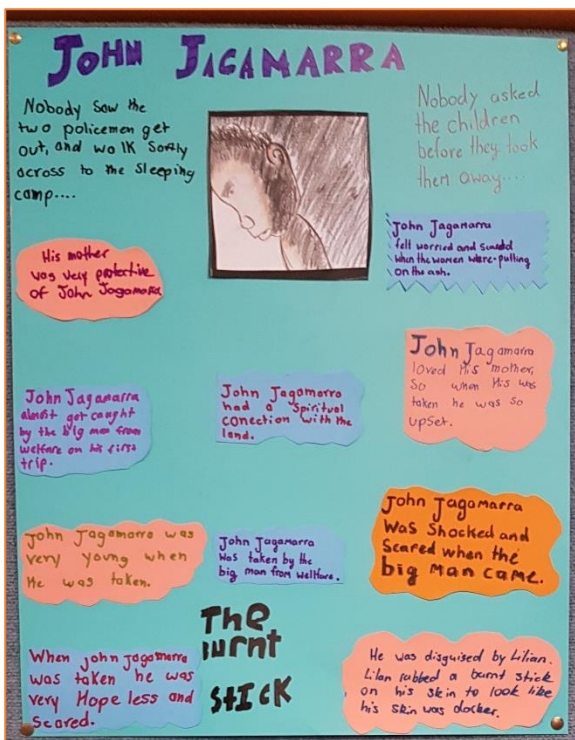 John Jagamarra
Nobody saw the
two policemen get
out, and walk softly
across to the sleeping
camp....
Nobody asked
the children
before they took
them away....
His mother
was very protective
of John Jagamarra
John Jagamarra
felt worried and scared
when the women were putting
on the ash.
John Jagamarra
almost got caught
by the big man from
welfare on his first
trip.
John Jagamarra
had a spiritual
conection with the
land.
John Jagamarra
loved His mother,
So when His was
taken he was so
upset.
John Jagamarra was
very young when
He was taken.
John Jagamarra
was taken by the
big man from welfare.
John Jagamarra
was Shocked and
Scared when the
big Man came.
The
Burnt
Stick
When John Jagamarra
was taken he was
very Hopeless and
Scared.
He was disguised by Lilian.
Lilan rabbed a burnt stick
on his skin to look like
his skin was darker.